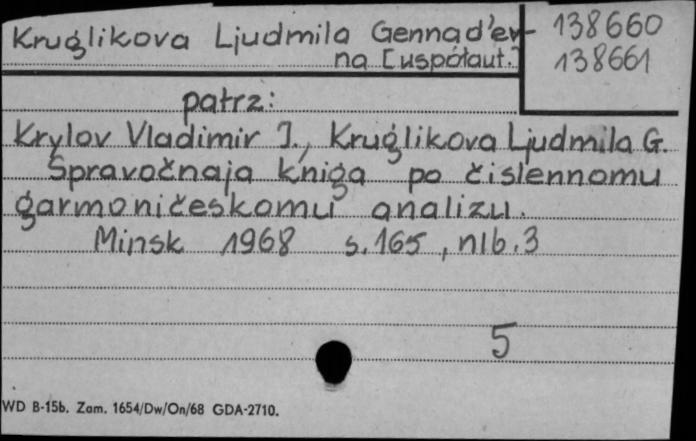 Kruglikova Ljudmila Gennad'ev-
na [współaut.]
138660
138661
patrz:
Krylov Vladimir I., Kruglikova Ljudmila G.
Spravočnaja kniga po čislennomu
garmoničeskomu analizu.
Minsk 1968 s.165, nlb.3
5
WD B-15b. Zam. 1654/Dw/On/68 GDA-2710.